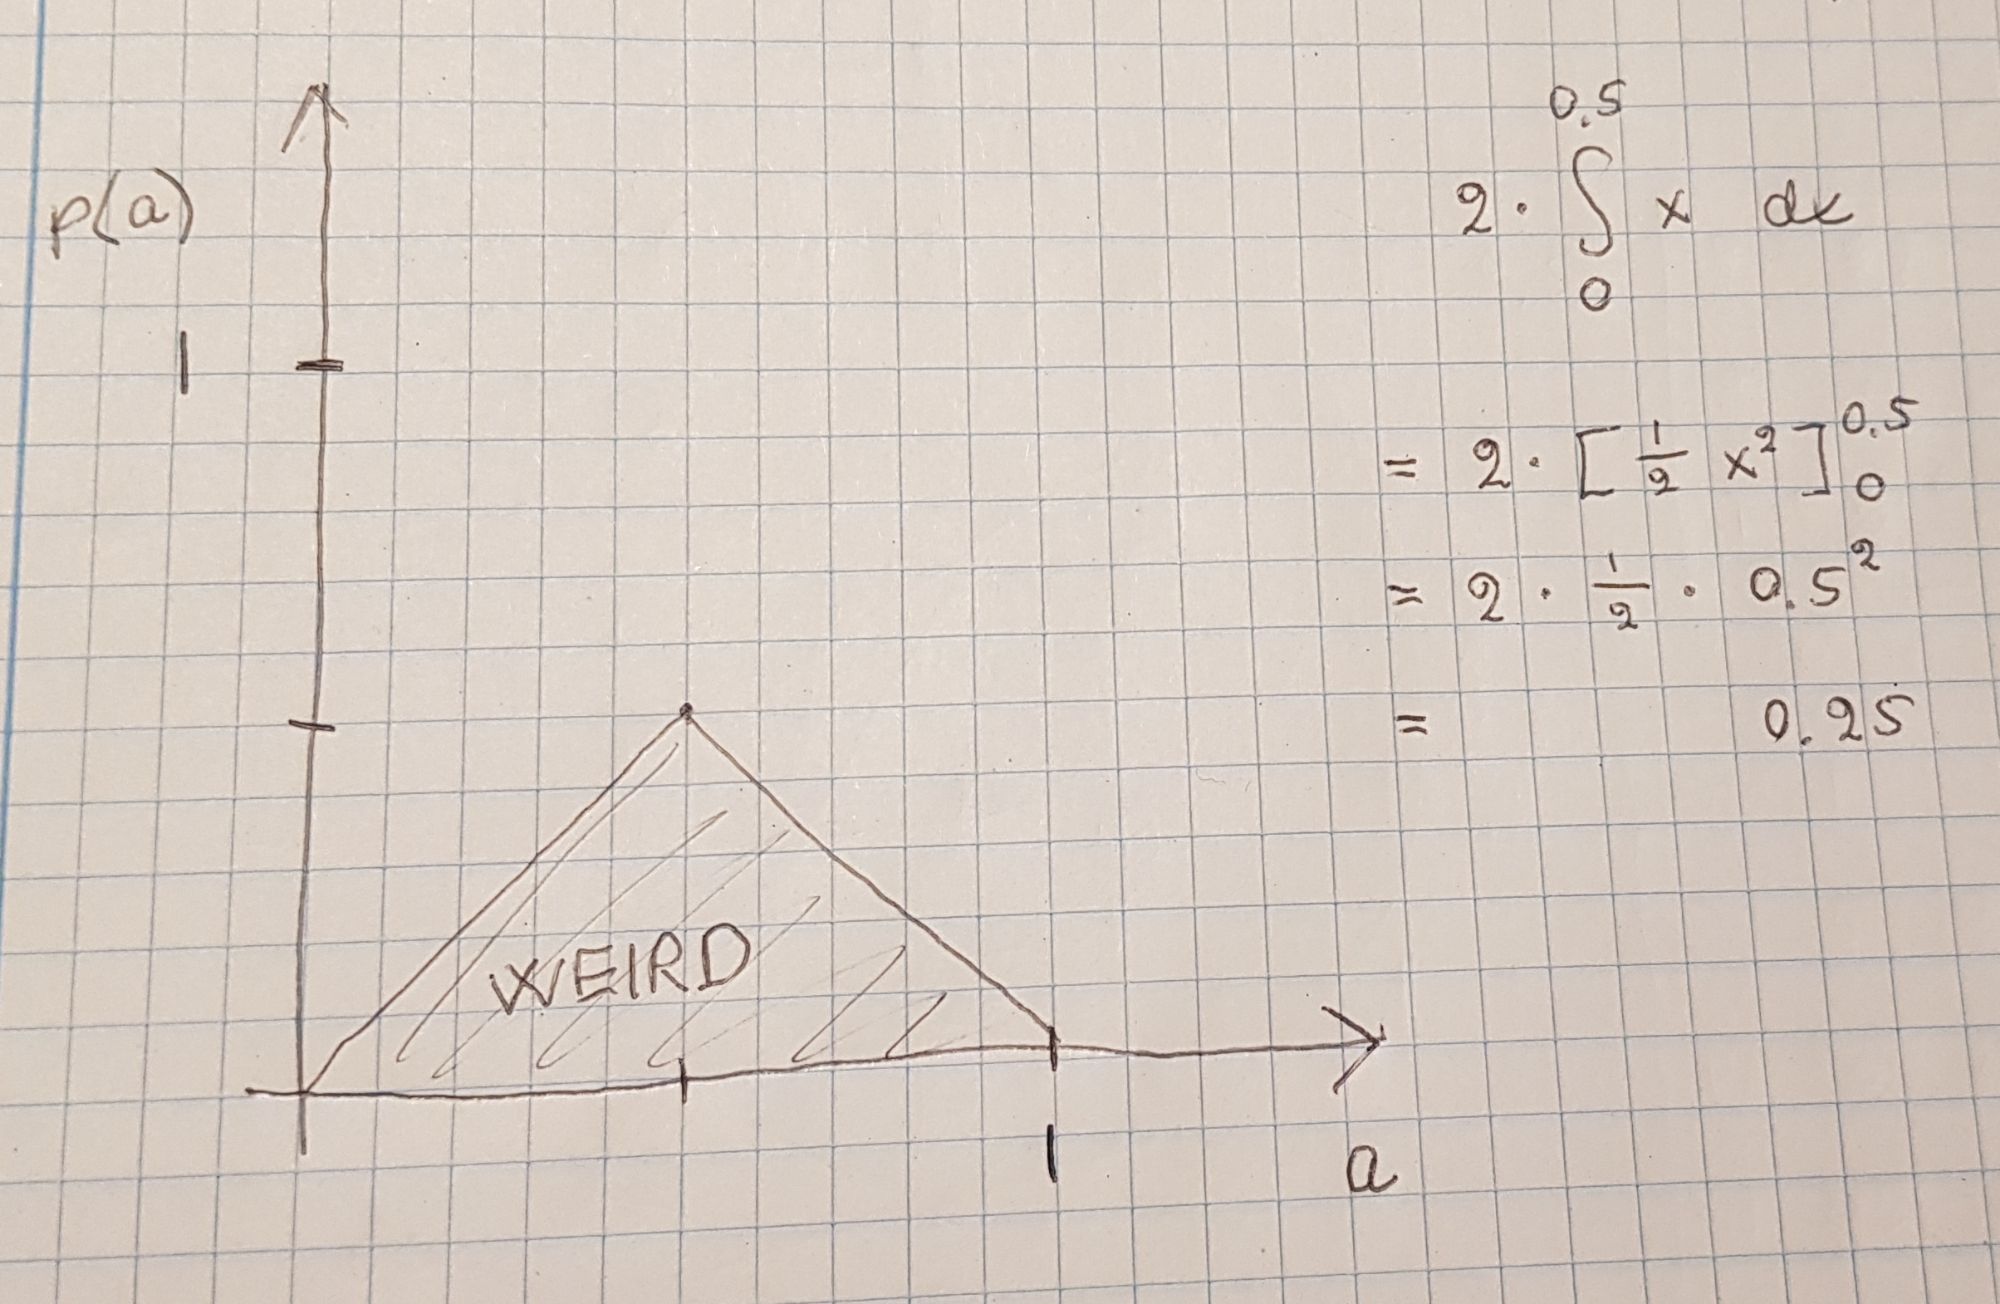 p(a)
1
WEIRD
1
a
0.5
2 · ∫ x dx
0
= 2 · [ 1/2 x² ] 0.5 0
= 2 · 1/2 · 0.5²
= 0.25